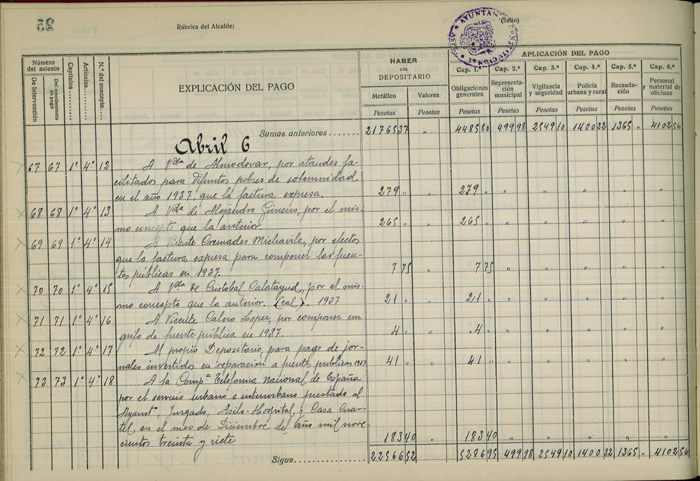 25
Rúbrica del Alcalde:
(Sello)
AYUNTA
Número del asiento
De Intervención
Del mandamiento de pago
Capítulos
Artículos
N.º del concepto
EXPLICACIÓN DEL PAGO
HABER DEL DEPOSITARIO
Metálico
Valores
Pesetas
Pesetas
APLICACIÓN DEL PAGO
Cap. 1.º
Cap. 2.º
Cap. 3.º
Cap. 4.º
Cap. 5.º
Cap. 6.º
Obligaciones generales
Representación municipal
Vigilancia y seguridad
Policía urbana y rural
Recaudación
Personal y material de oficinas
Pesetas
Pesetas
Pesetas
Pesetas
Pesetas
Pesetas
Sumas anteriores 2176537 " 44858 49998 254910 140022 1365 " 410256
Abril 6
67 67 1º 4º 12 A Vda de Almodovar, por ataudes fa-
cilitados para difuntos pobres de solemnidad
en el año 1937, que la factura expresa. 279 " 279 " " " " "
68 68 1º 4º 13 A Vda de Alejandro Gimeno, por el mis-
mo concepto que la anterior. 265 " 265 " " " " "
69 69 1º 4º 14 A Vicente Cremades Michavila, por efectos
que la factura expresa para componer las fuen-
tes públicas en 1937. 7 75 " 7 75 " " " " "
70 70 1º 4º 15 A Vda de Cristobal Calatayud, por el mis-
mo concepto que la anterior. (cal). 1937 21 " 21 " " " " "
71 71 1º 4º 16 A Vicente Calero Lopez, por componer un
grifo de fuente pública en 1937. 4 " 4 " " " " "
72 72 1º 4º 17 Al propio Depositario, para pago de jor-
nales invertidos en reparación a fuentes públicas 1937 41 " 41 " " " " "
73 73 1º 4º 18 A la Compª Telefonica Nacional de España
por el servicio urbano e interurbano prestado al
Ayuntº, Juzgado, Asilo-Hospital, y Casa Cuar-
tel, en el mes de Diciembre del año mil nove-
cientos treinta y siete 18340 " 18340 " " " " "
Sigue 2256652 528695 49998 254910 140022 1365 " 410256